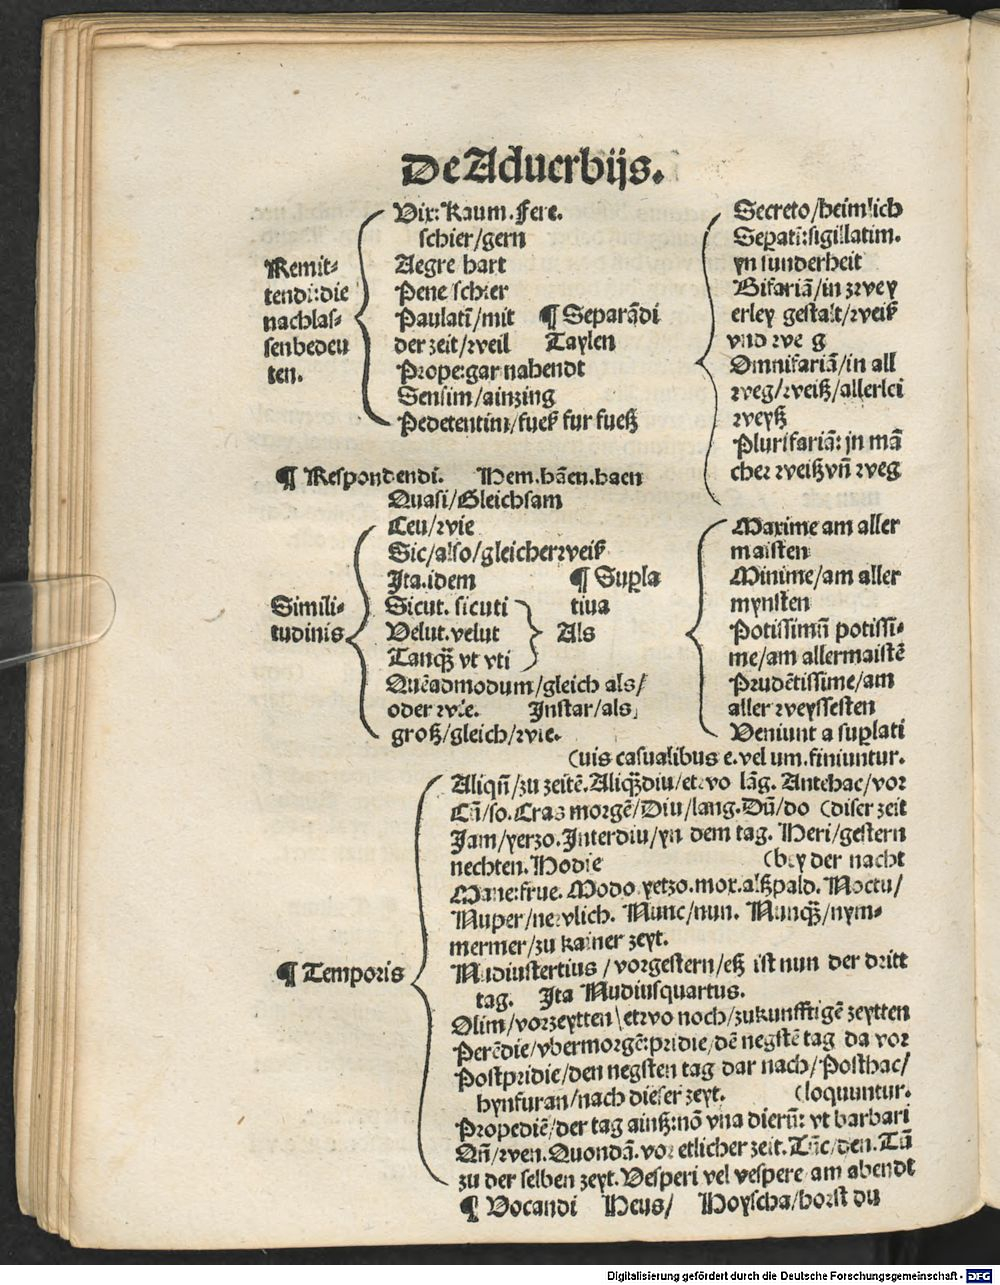 De Aduerbijs.
Remit-
tendi: die
nachlas-
senbedeu
ten.
Vix: Kaum. Fere.
schier/gern
Aegre hart
Pene schier
Paulatī/mit
der zeit/weil
Prope: gar nahendt
Sensim/aintzing
Pedetentim/fueß fur fueß
¶ Separādi
Taylen
Secreto/heimlich
Sepati: sigillatim.
yn sunderheit
Bifariā/in zwey
erley gestalt/weiß
vnd we g
Omnifariā/in all
weg/weiß/allerlei
weyß
Plurifariā: jn mā
cher weiß vn̄ weg
¶ Respondendi. Hem. hāen. haen
Simili-
tudinis
Quasi/Gleichsam
Ceu/wie
Sic/also/gleicherweiß
Ita. idem
Sicut. sicuti
Velut. velut
Tanqȝ vt vti
Als
Quēadmodum/gleich als/
oder wie. Instar/als,
groß/gleich/wie.
¶ Supla
tiua
Maxime am aller
maisten
Minime/am aller
mynsten
Potissimū potissi-
me/am allermaistē
Prudētissime/am
aller weyssesten
Veniunt a suplati
(uis casualibus e. vel um. finiuntur.
¶ Temporis
Aliqn̄/zu zeitē. Aliqȝdiu/etwo lāg. Antehac/vor
Cū/so. Cras morgē/Diu/lang. Dū/do (diser zeit
Jam/yetzo. Interdiu/yn dem tag. Heri/gestern
nechten. Hodie (bey der nacht
Mane: frue. Modo yetzo. mox. alßpald. Noctu/
Nuper/newlich. Nunc/nun. Nunqȝ/nym-
mermer/zu kainer zeyt.
Nudiustertius/vorgestern/eß ist nun der dritt
tag. Ita Nudiusquartus.
Olim/vorzeytten\etwo noch/zukunfftigē zeytten
Perēdie/vbermorgē: pridie/dē negstē tag da vor
Postpridie/den negsten tag dar nach/Posthac/
hynfuran/nach dieser zeyt. (loquuntur.
Propediē/der tag ainß: nō vna dierū: vt barbari
Qn̄/wen. Quondā. vor etlicher zeit. Tūc/den. Tū
zu der selben zeyt. Vesperi vel vespere am abendt
¶ Vocandi Heus/ Hoyscha/horst du
Digitalisierung gefördert durch die Deutsche Forschungsgemeinschaft - DFG